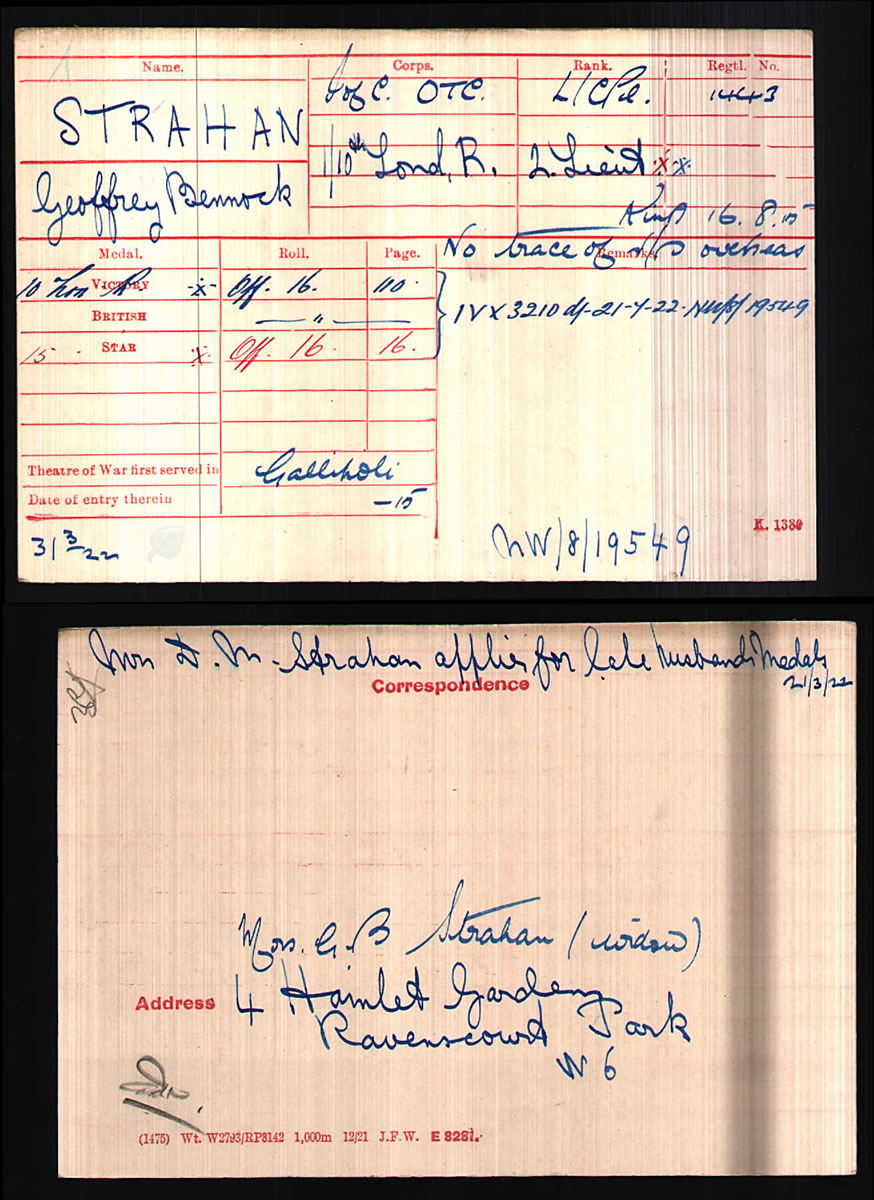 Name. Corps. Rank. Regtl. No.
STRAHAN
Geoffrey Bennock
I of C. OTC. L/Cpl. 1443
1/10th Lond. R. 2. Lieut x x
K in A 16.8.15
Medal. Roll. Page. Remarks.
No trace of d/s overseas
10 Lon R. VICTORY x Off. 16. 110.
BRITISH — " —
15 STAR x Off. 16. 16.
IVX 3210 19549
Theatre of War first served in Gallipoli
Date of entry therein —15
31 3/22
NW/8/19549
K. 1380
Mrs D. M. Strahan applies for late husbands Medals
21/3/22
Correspondence
Mrs. G. B Strahan (widow)
Address 4 Hamlet Gardens
Ravenscourt Park
W 6
(1475) Wt. W2793/RP3142 1,000m 12/21 J.F.W. E 8281.